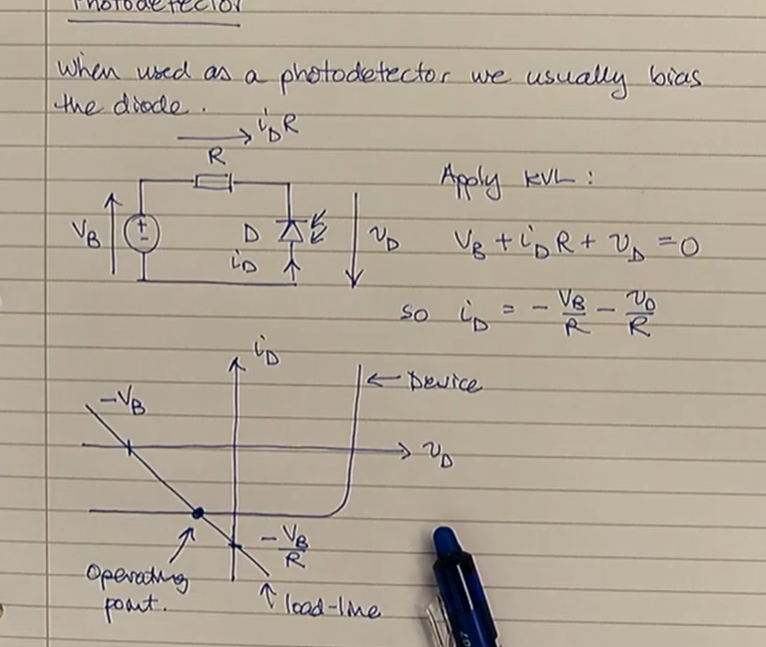 Photodetector
When used as a photodetector we usually bias
the diode.
i_D R
R
Apply KVL:
V_B
+
-
D
i_D
v_D
V_B + i_D R + v_D = 0
so i_D = - V_B/R - v_D/R
i_D
-V_B
← Device
v_D
-V_B/R
Operating
point.
load-line